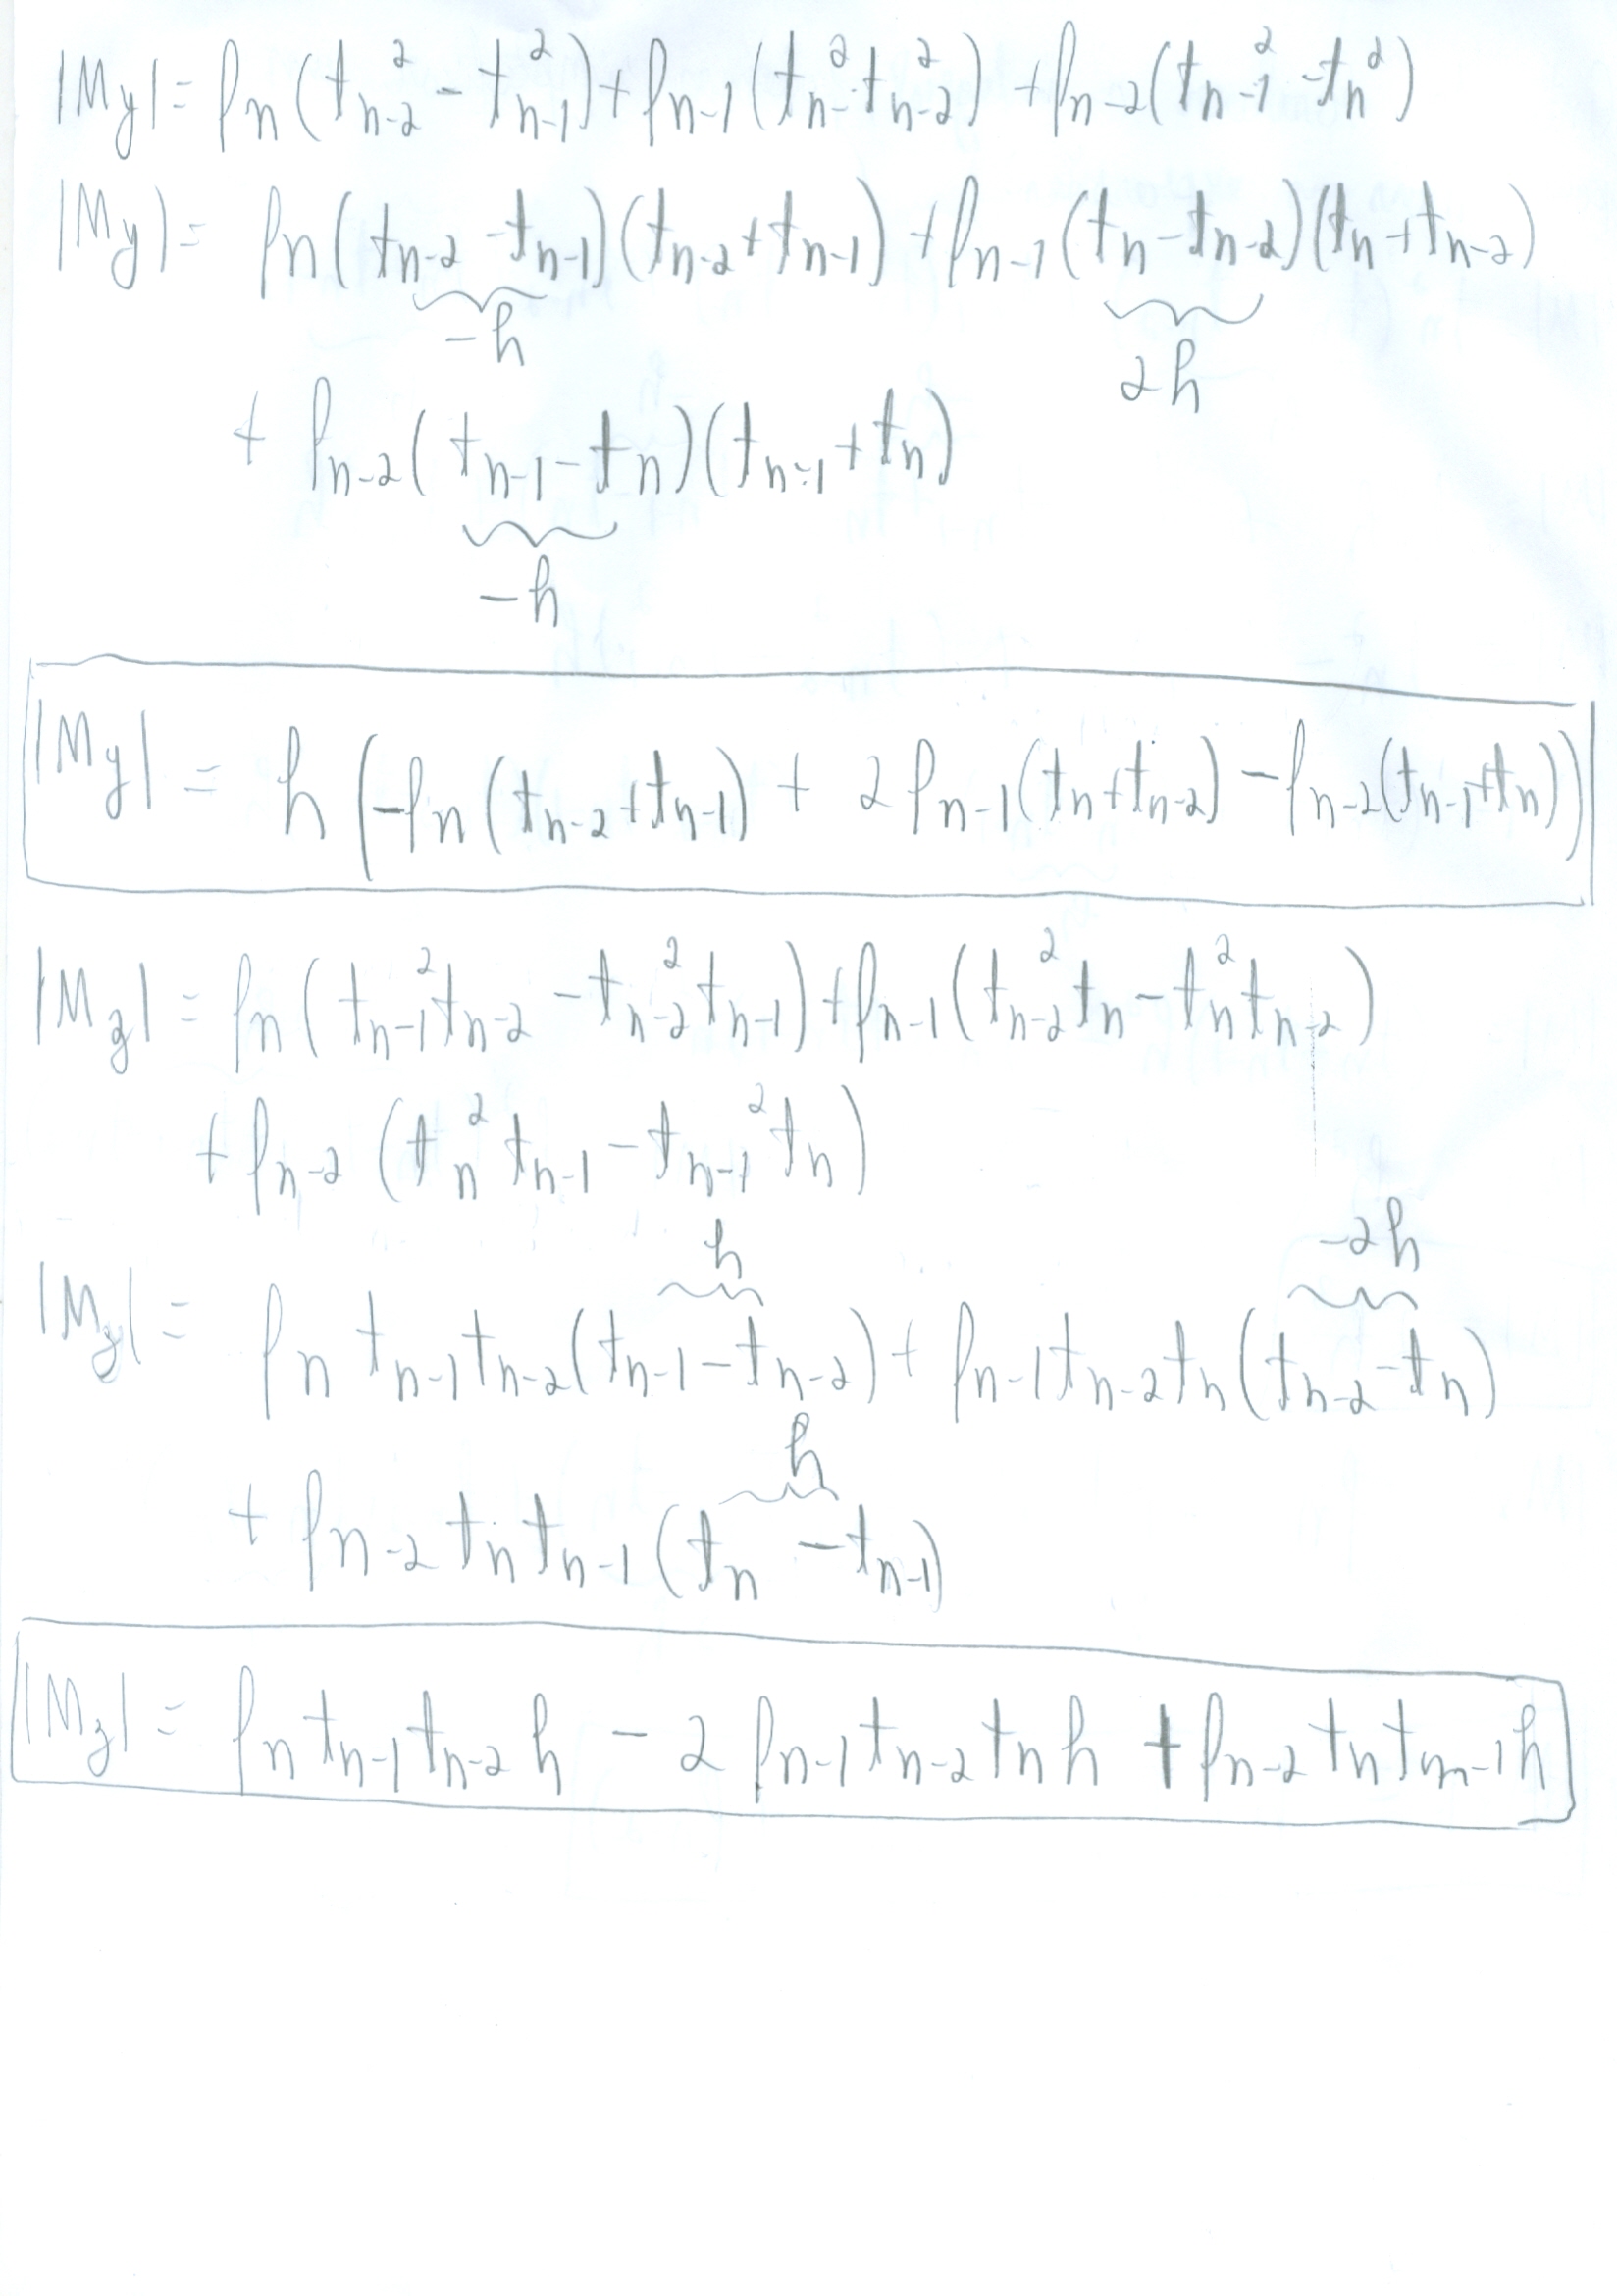 |My| = fn (tn-2² - tn-1²) + fn-1 (tn² - tn-2²) + fn-2 (tn-1² - tn²)
|My| = fn (tn-2 - tn-1)(tn-2 + tn-1) + fn-1 (tn - tn-2)(tn + tn-2)
-h 2h
+ fn-2 (tn-1 - tn)(tn-1 + tn)
-h
|My| = h (-fn (tn-2 + tn-1) + 2 fn-1 (tn + tn-2) - fn-2 (tn-1 + tn))
|Mz| = fn (tn-1² tn-2 - tn-2² tn-1) + fn-1 (tn-2² tn - tn² tn-2)
+ fn-2 (tn² tn-1 - tn-1² tn)
h -2h
|Mz| = fn tn-1 tn-2 (tn-1 - tn-2) + fn-1 tn-2 tn (tn-2 - tn)
h
+ fn-2 tn tn-1 (tn - tn-1)
|Mz| = fn tn-1 tn-2 h - 2 fn-1 tn-2 tn h + fn-2 tn tn-1 h